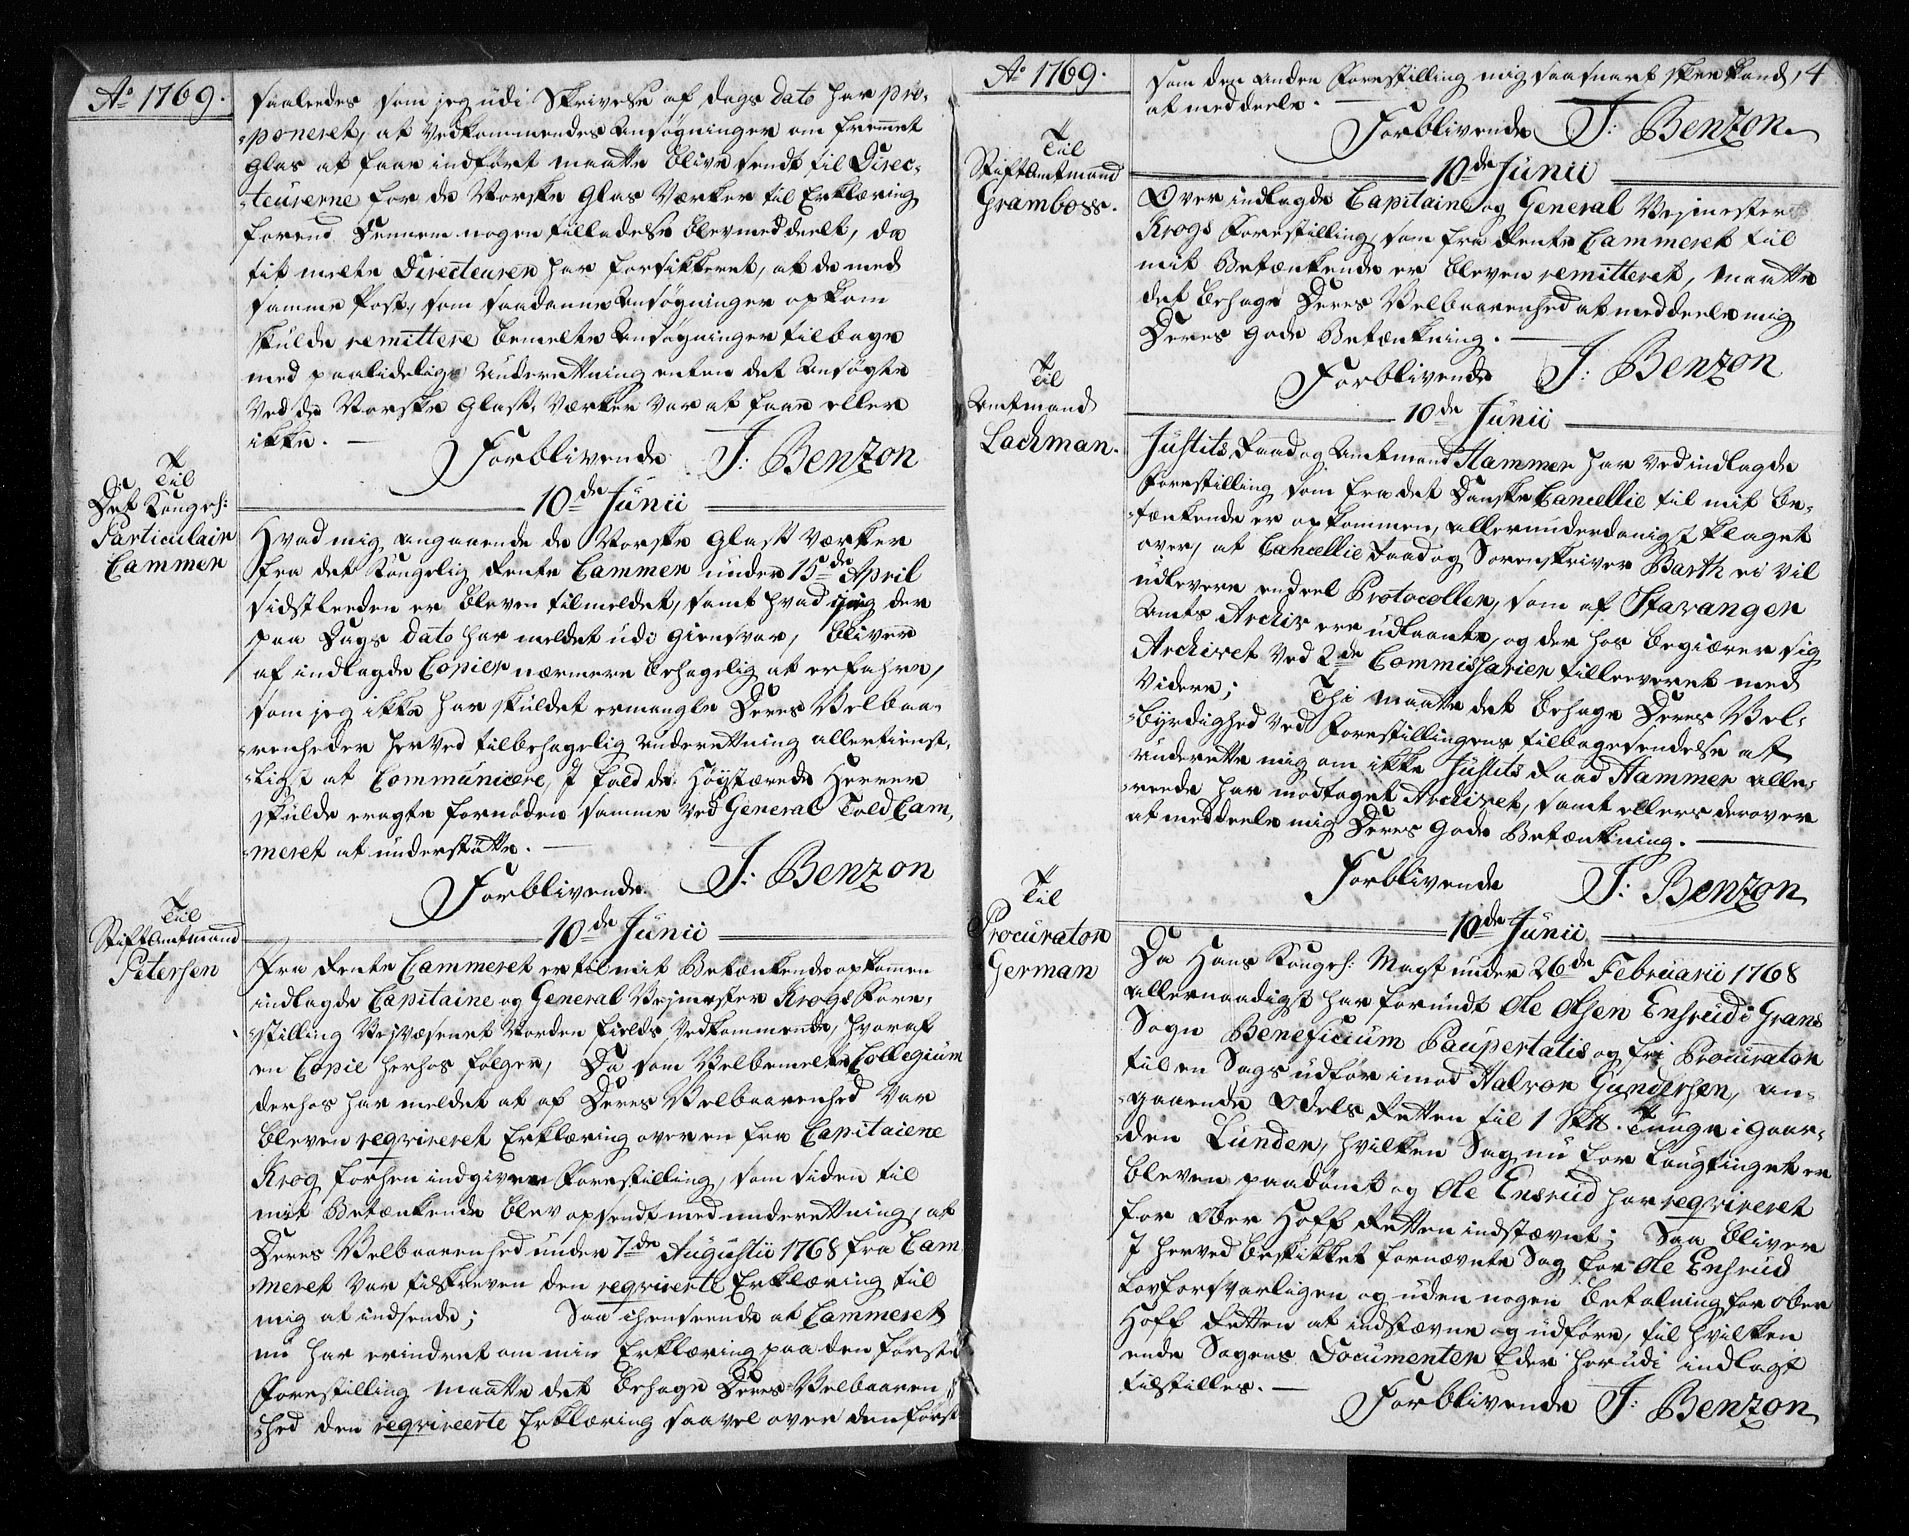 Ao 1769.
saaleedes som jeg udi Skrivelse af dags dato har pro-
-poneret, at Vedkommendes Ansøgninger om fremmet
Glas at faae indført maatte blive sendt til Direc-
-teurerne for de Norske Glas Værker til Erklæring
forend Dennem nogen tilladelse blev meddeelt, da
tit melte Directeuren har forsikkeret, at de med
samme Post, som saadanne Ansøgninger opkom
skulde remittere bemelte Ansøgninger tilbage
med paalidelig Underettning enten det Ansøgte
Ved de Norske Glass Værker var at faae eller
ikke. —
Forblivende J: Benzon
Til
Det Kongel:
Particulair
Cammer
10de Junii
Hvad mig angaaende de Norske Glass Værker
fra det Kongelig Rente Cammer under 15de April
sidstleeden er bleven tilmeldet, samt hvad jeg der
paa Dags dato har meldet udi giensvar, bliver
af indlagde Copier nærmere behagelig at erfahre,
som jeg ikke har skuldet ermangle Deres Velbaa-
-renheder herved til behagelig Underettning allertienst-
-ligst at Communicere, I fald de Høystærede Herrer
skulde eragte fornøden samme ved General Told Cam-
-meret at understøtte. —
Forblivende J: Benzon
Til
Stiftamtmand
Petersen
10de Junii
Fra Rente Cammeret er til mit Betænkende opkommen
indlagde Capitaine og General Vejmester Krogs Fore-
-stilling Vejvæsenet Norden fields Vedkommende, hvoraf
en Copie herhos følger, Da som Velbemelte Collegium
derhos har meldet at af Deres Velbaarenhed var
bleven reqvireret Erklæring over en fra Capitaiene
Krog forhen indgiven Forestilling, som siden til
mit Betænkende blev opsendt med underettning, at
Deres Velbaarenhed under 7de Augustii 1768 fra Cam-
meret var tilskreven den reqvirerte Erklæring til
mig at indsende; Saa i henseende at Cammeret
nu har erindret om min Erklæring paa den første
Forestilling maatte det behage Deres Velbaaren-
-hed den reqvireerte Erklæring saavel over den første
Ao 1769.
som den anden Forestilling mig saa snart skee kand, 4
at meddeele. —
Forblivende J: Benzon
Til
Stiftamtmand
Gramboss.
10de Junii
Over indlagde Capitaine og General Vejmester
Krogs Forestilling, som fra Rente Cammeret til
mit Betænkende er bleven remitteret, maatte
det behage Deres Velbaarenhed at meddeele mig
Deres gode Betænkning. —
Forblivende J: Benzon
Til
Amtmand
Lachman.
10de Junii
Justits Raad og Amtmand Hammer har ved indlagde
Forestilling som fra det Danske Cancellie til mit be-
-tænkende er opkommen, allerunderdanigst klaget
over, at Cancellie Raad og Sorenskriver Barth ei vil
udlevere endeel Protocoller, som af Stavanger
Amts Archiv ere udlaante, og der hos begiærer sig
Archivet ved 2de Commissarier tilleeveret med
Videre; Thi maatte det behage Deres Vel-
-byrdighed ved Forestillingens tilbagesendelse at
underette mig om ikke Justits Raad Hammer alle-
-reede har modtaget Archivet, samt ellers derover
at meddeele mig Deres gode Betænkning. —
Forblivende J: Benzon
Til
Procurator
German
10de Junii
Da Hans Kongel: Mayst under 26de Februarii 1768
allernaadigst har forundt Ole Olsen Ensrud i Grans
Sogn Beneficium Paupertatis og fri Procurator
til en Sags udfør imod Halvor Gundersen, an-
-gaaende Odels Retten til 1 Skt. Tunge i gaar-
-den Lunder, hvilken Sag nu for Laugtinget er
bleven paadømt og Ole Ensrud har reqvireret
for Ober Hoff Retten indstævnt; Saa bliver
I herved beskikket fornævnte Sag for Ole Ensrud
Lovforsvarligen og uden nogen betalning for Ober
Hoff Retten at indstævne og udføre, til hvilken
ende Sagens Documenter Eder herudi indlagt
tilstilles. —
Forblivende J: Benzon